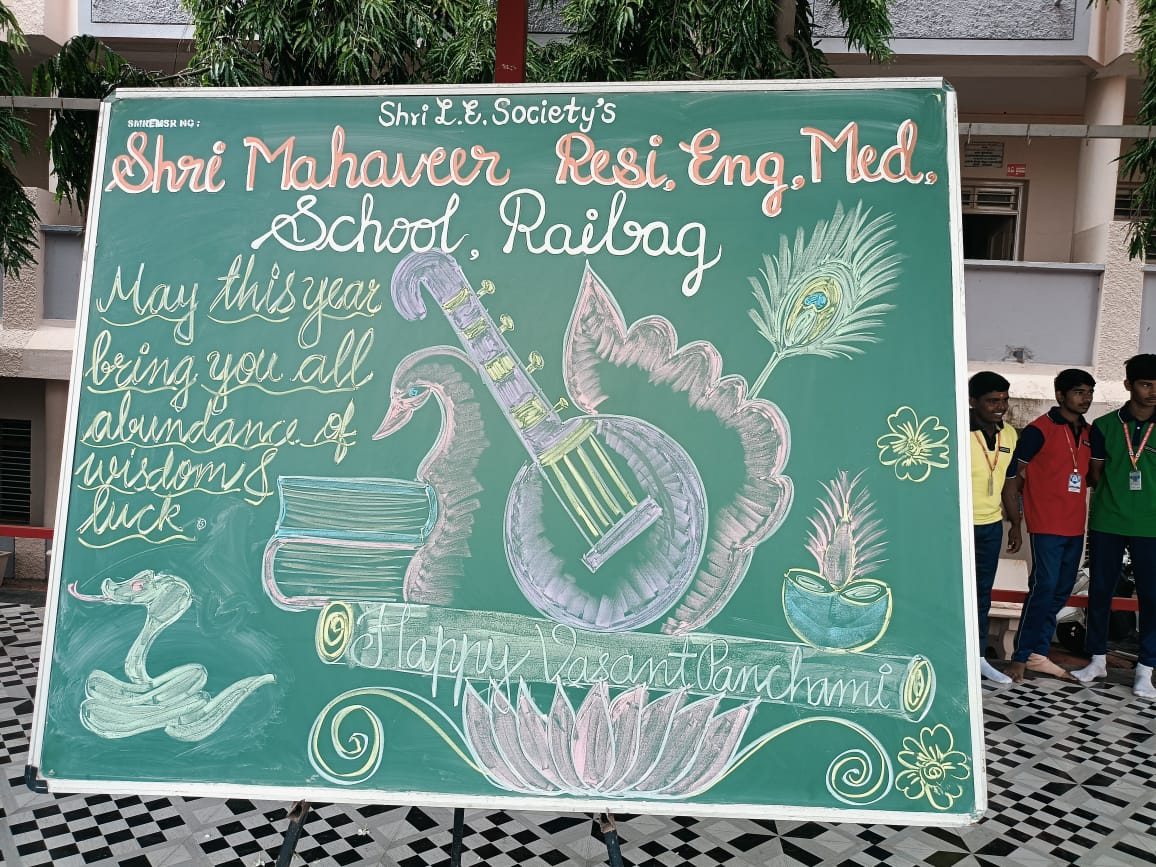 Shri L.E. Society's
SMREMSR NO:
Shri Mahaveer Resi, Eng, Med,
School, Raibag
May this year
bring you all
abundance of
wisdom &
luck.
Happy Vasant Panchami